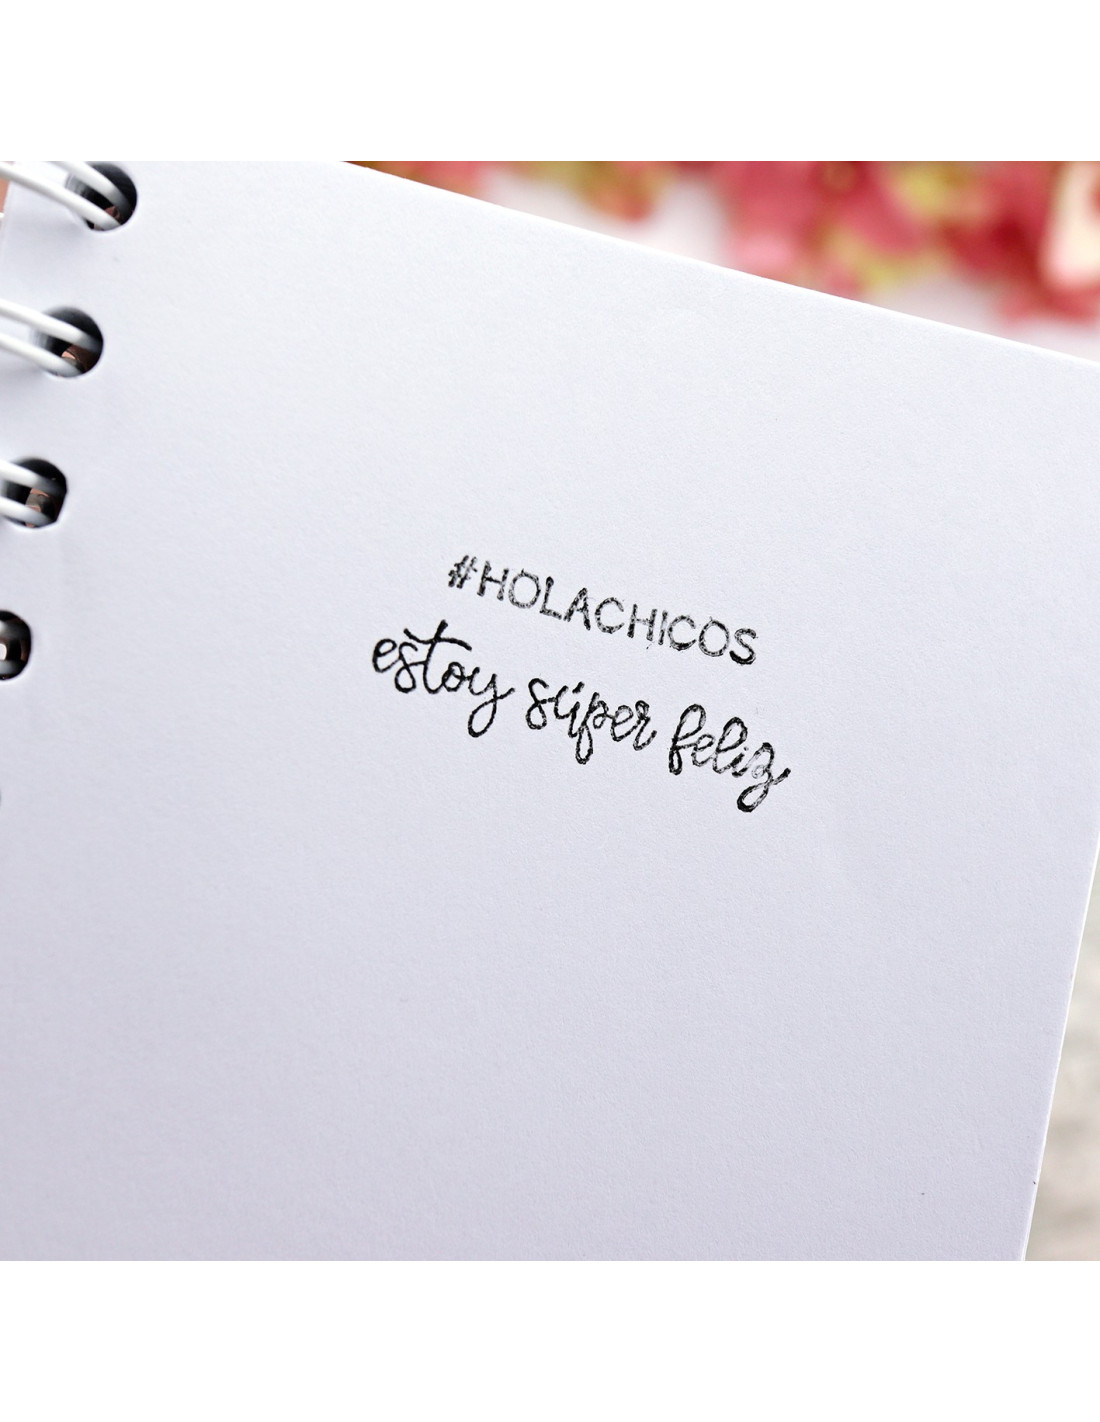 #HOLACHICOS
estoy súper feliz